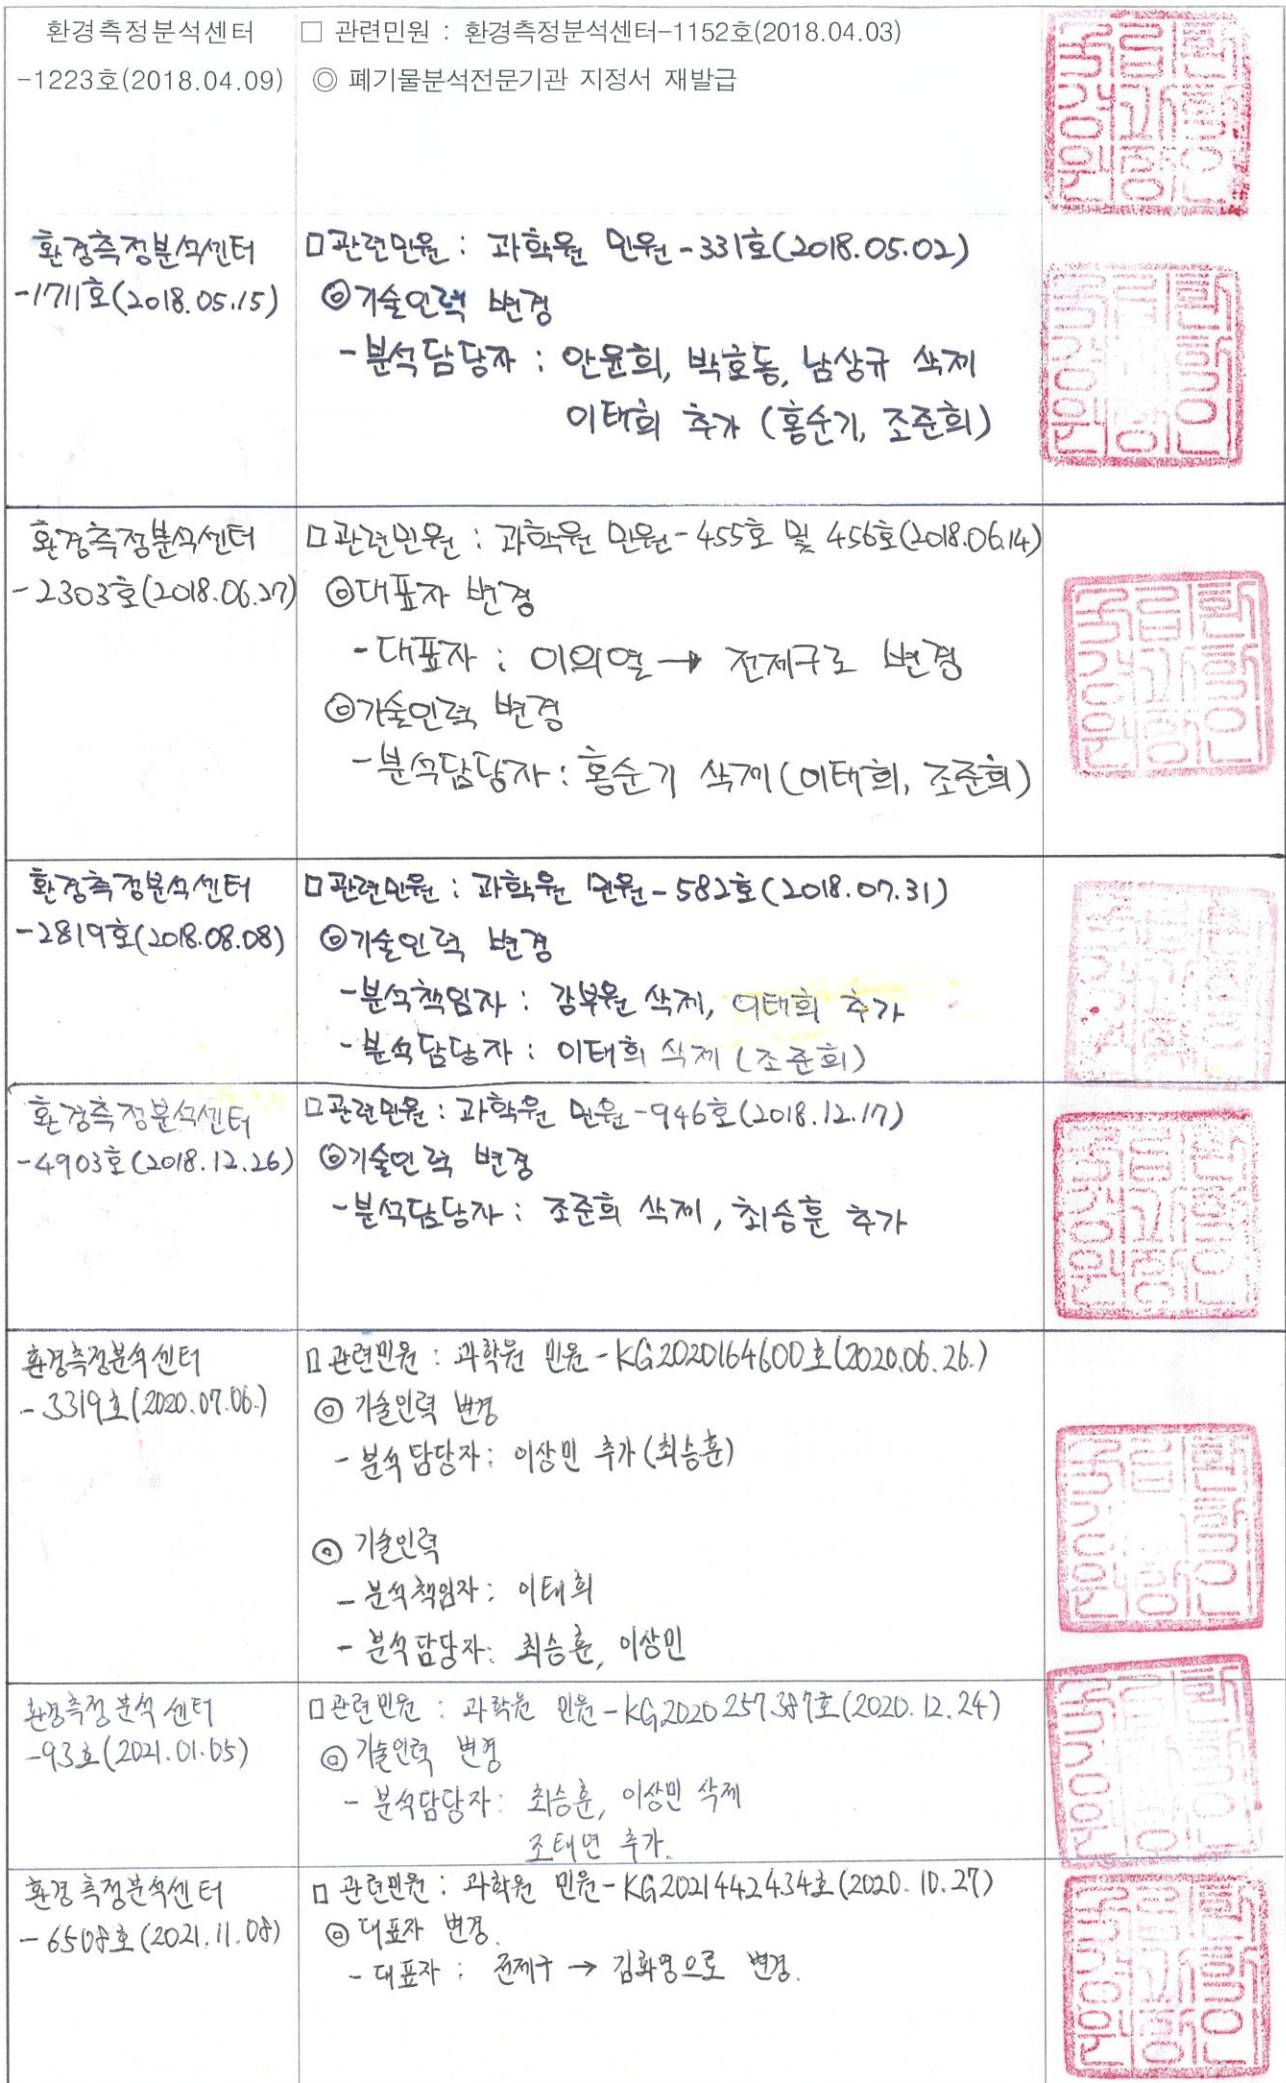 환경측정분석센터
-1223호(2018.04.09)
□ 관련민원 : 환경측정분석센터-1152호(2018.04.03)
◎ 폐기물분석전문기관 지정서 재발급
환경측정분석센터
-1711호(2018.05.15)
□관련민원 : 과학원 민원-331호(2018.05.02)
◎기술인력 변경
-분석담당자 : 안윤희, 박호동, 남상규 삭제
이태희 추가 (홍순기, 조준희)
환경측정분석센터
-2303호(2018.06.27)
□관련민원 : 과학원 민원-455호 및 456호(2018.06.14)
◎대표자 변경
-대표자 : 이의열 → 전제구로 변경
◎기술인력 변경
-분석담당자 : 홍순기 삭제(이태희, 조준희)
환경측정분석센터
-2819호(2018.08.08)
□관련민원 : 과학원 민원-582호(2018.07.31)
◎기술인력 변경
-분석책임자 : 강부원 삭제, 이태희 추가
-분석담당자 : 이태희 삭제 (조준희)
환경측정분석센터
-4903호(2018.12.26)
□관련민원 : 과학원 민원-946호(2018.12.17)
◎기술인력 변경
-분석담당자 : 조준희 삭제, 최승훈 추가
환경측정분석센터
- 3319호(2020.07.06.)
□관련민원 : 과학원 민원-KG2020164600호(2020.06.26.)
◎ 기술인력 변경
- 분석담당자 : 이상민 추가(최승훈)
◎ 기술인력
- 분석책임자 : 이태희
- 분석담당자 : 최승훈, 이상민
환경측정분석센터
-93호(2021.01.05)
□관련민원 : 과학원 민원-KG2020257387호(2020.12.24)
◎ 기술인력 변경
- 분석담당자 : 최승훈, 이상민 삭제
조태연 추가.
환경측정분석센터
- 6508호(2021.11.08)
□ 관련민원 : 과학원 민원-KG2021442434호(2020.10.27)
◎ 대표자 변경.
- 대표자 : 전제구 → 김화영으로 변경.
국립환경과학원인